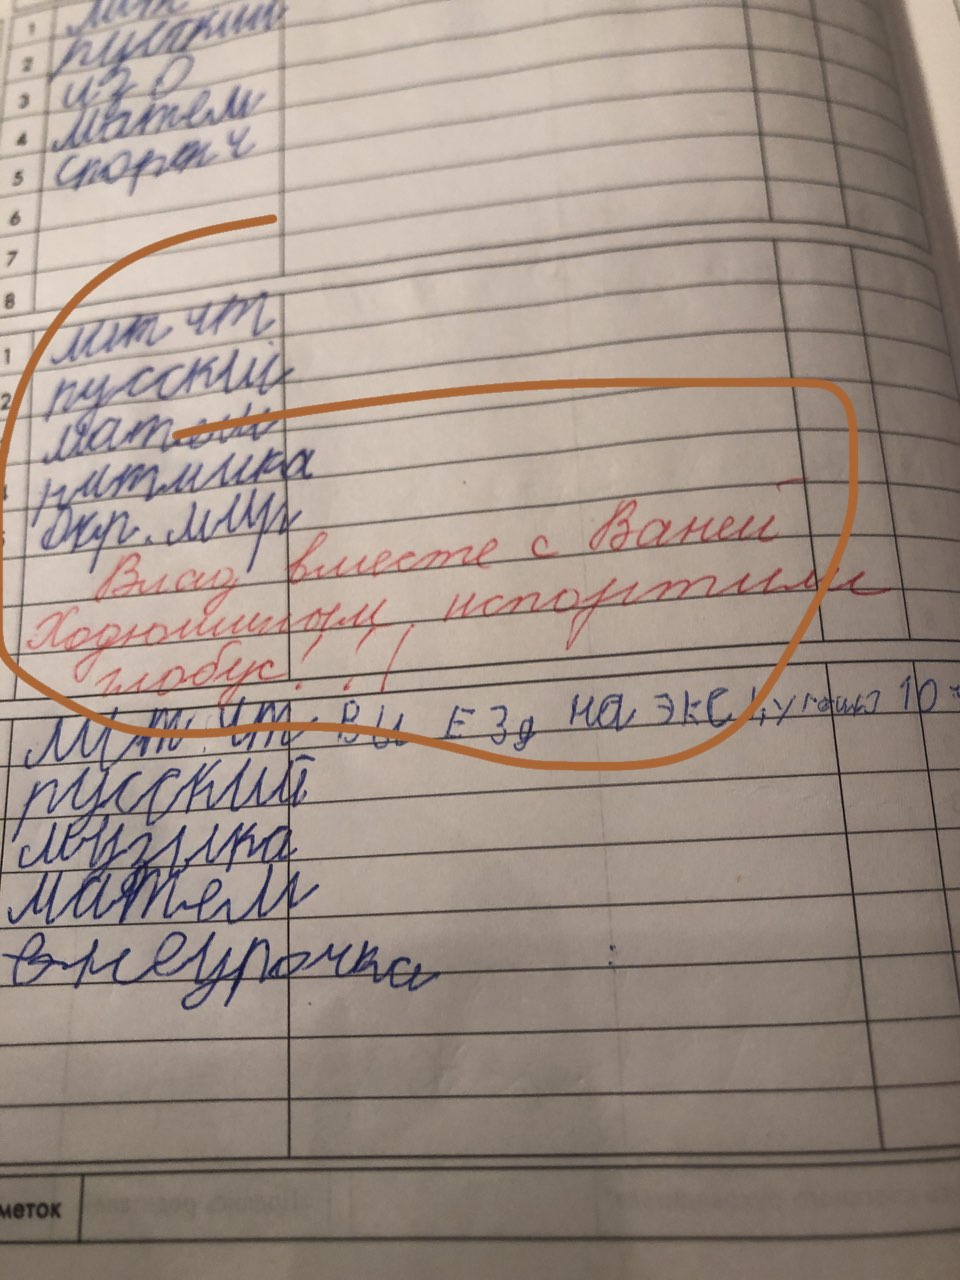 1 лит
2 русский
3 изо
4 матем
5 спорт ч
6
7
8
1 лит чт
2 русский
матем
ритмика
окр. мир
Влад вместе с Ваней
испортили
глобус!!!
лит. чт ВЫЕЗд на 10
русский
музыка
матем
внеурочка
меток